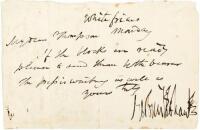 Whitefriars
Monday
My dear Thompson
if the blocks are ready
please to send them by the bearer
the press is waiting as well as
yours truly